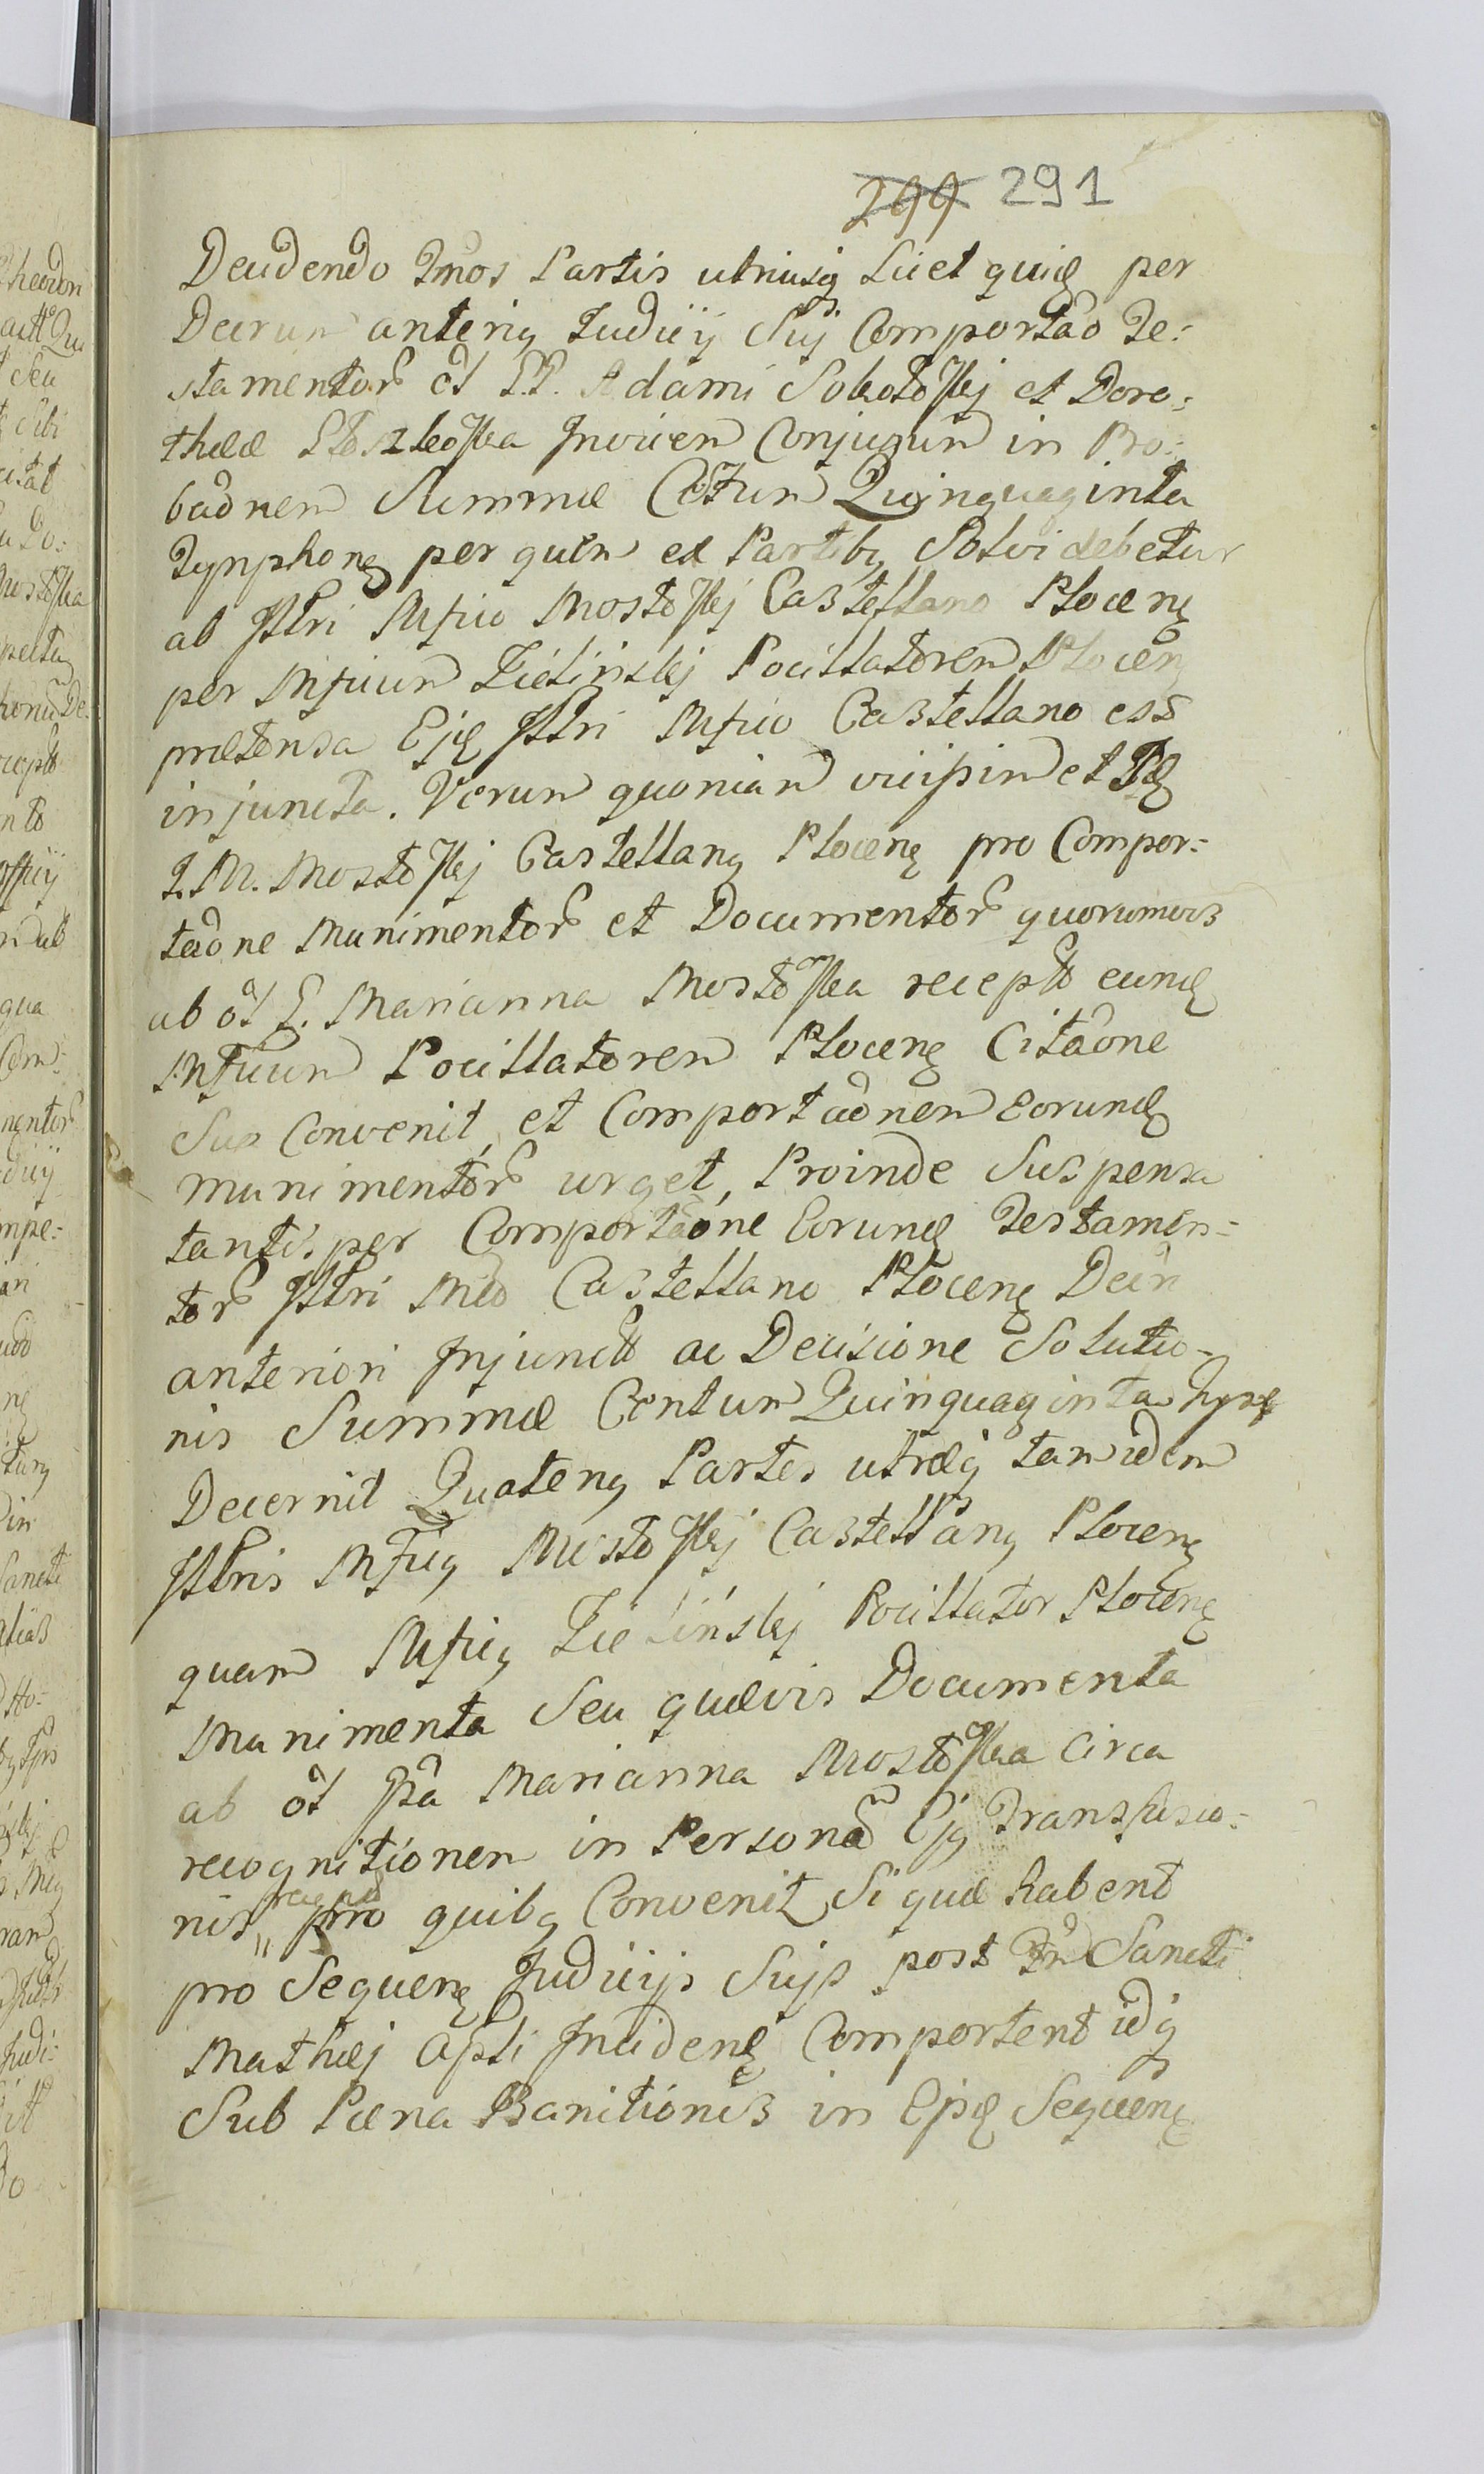 299 291
Deudendo Tmos Partis utriusq Licet quid per
Decrum anterig Judicij Sui Comportao Te:
stamentor ol P.P. Adami Sokotoskj et Doro:
theæ Stoszkoska Invicem Conjugum in Pro:
baõnem Summæ Cetum Quinquaginta
Tynphong per quem ex Partibq Solvi debetur
ab Illri Mfico Mostoskj Castellano Plocenę
per Mficum Zielinskj Pocillatorem Plocen
prætensa Ejd Illri Mfico Castellano est
injuncta. Verum quoniam vicissim et Id
I.M. Mostoskj Castellang Plocenę pro Compor:
taõne Munimentor et Documentor quorumvis
ab ol G. Marianna Mostoska recept eund
Mficum Pocillatorem Plocenę Citaõne
Sua Convenit, et Comportaõnem Eorund
munimentor urget, Proinde Suspensa
tantisper Comportaõne Eorund Testamen:
tor Illri Mco Castellano Plocenę Decr
anteriori Injunct ac Decisione Solutio:
nis Summæ Centum Quinquaginta Tynf
Decernit Quateng Partes utræq tam idem
Illris Mficg Mostoskj Castellang Plocenę
quam Mficg Zielinskj Pocillator Plocenę
Munimenta Seu quævis Documenta
ab ol Gsa Marianna Mostoska circa
recognitionem in Personam Ejg Transfusio:
nis, pro quibq Convenit Si quæ habent
pro Sequenę Judicijs Sujs post Fm Sancti
Mathæj Apli Incidenę Comportent idq
Sub Pæna Banitionis in Ejd Sequenę